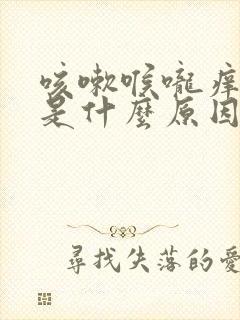 咳嗽喉嚨癢
是什麼原因
尋找失落的愛